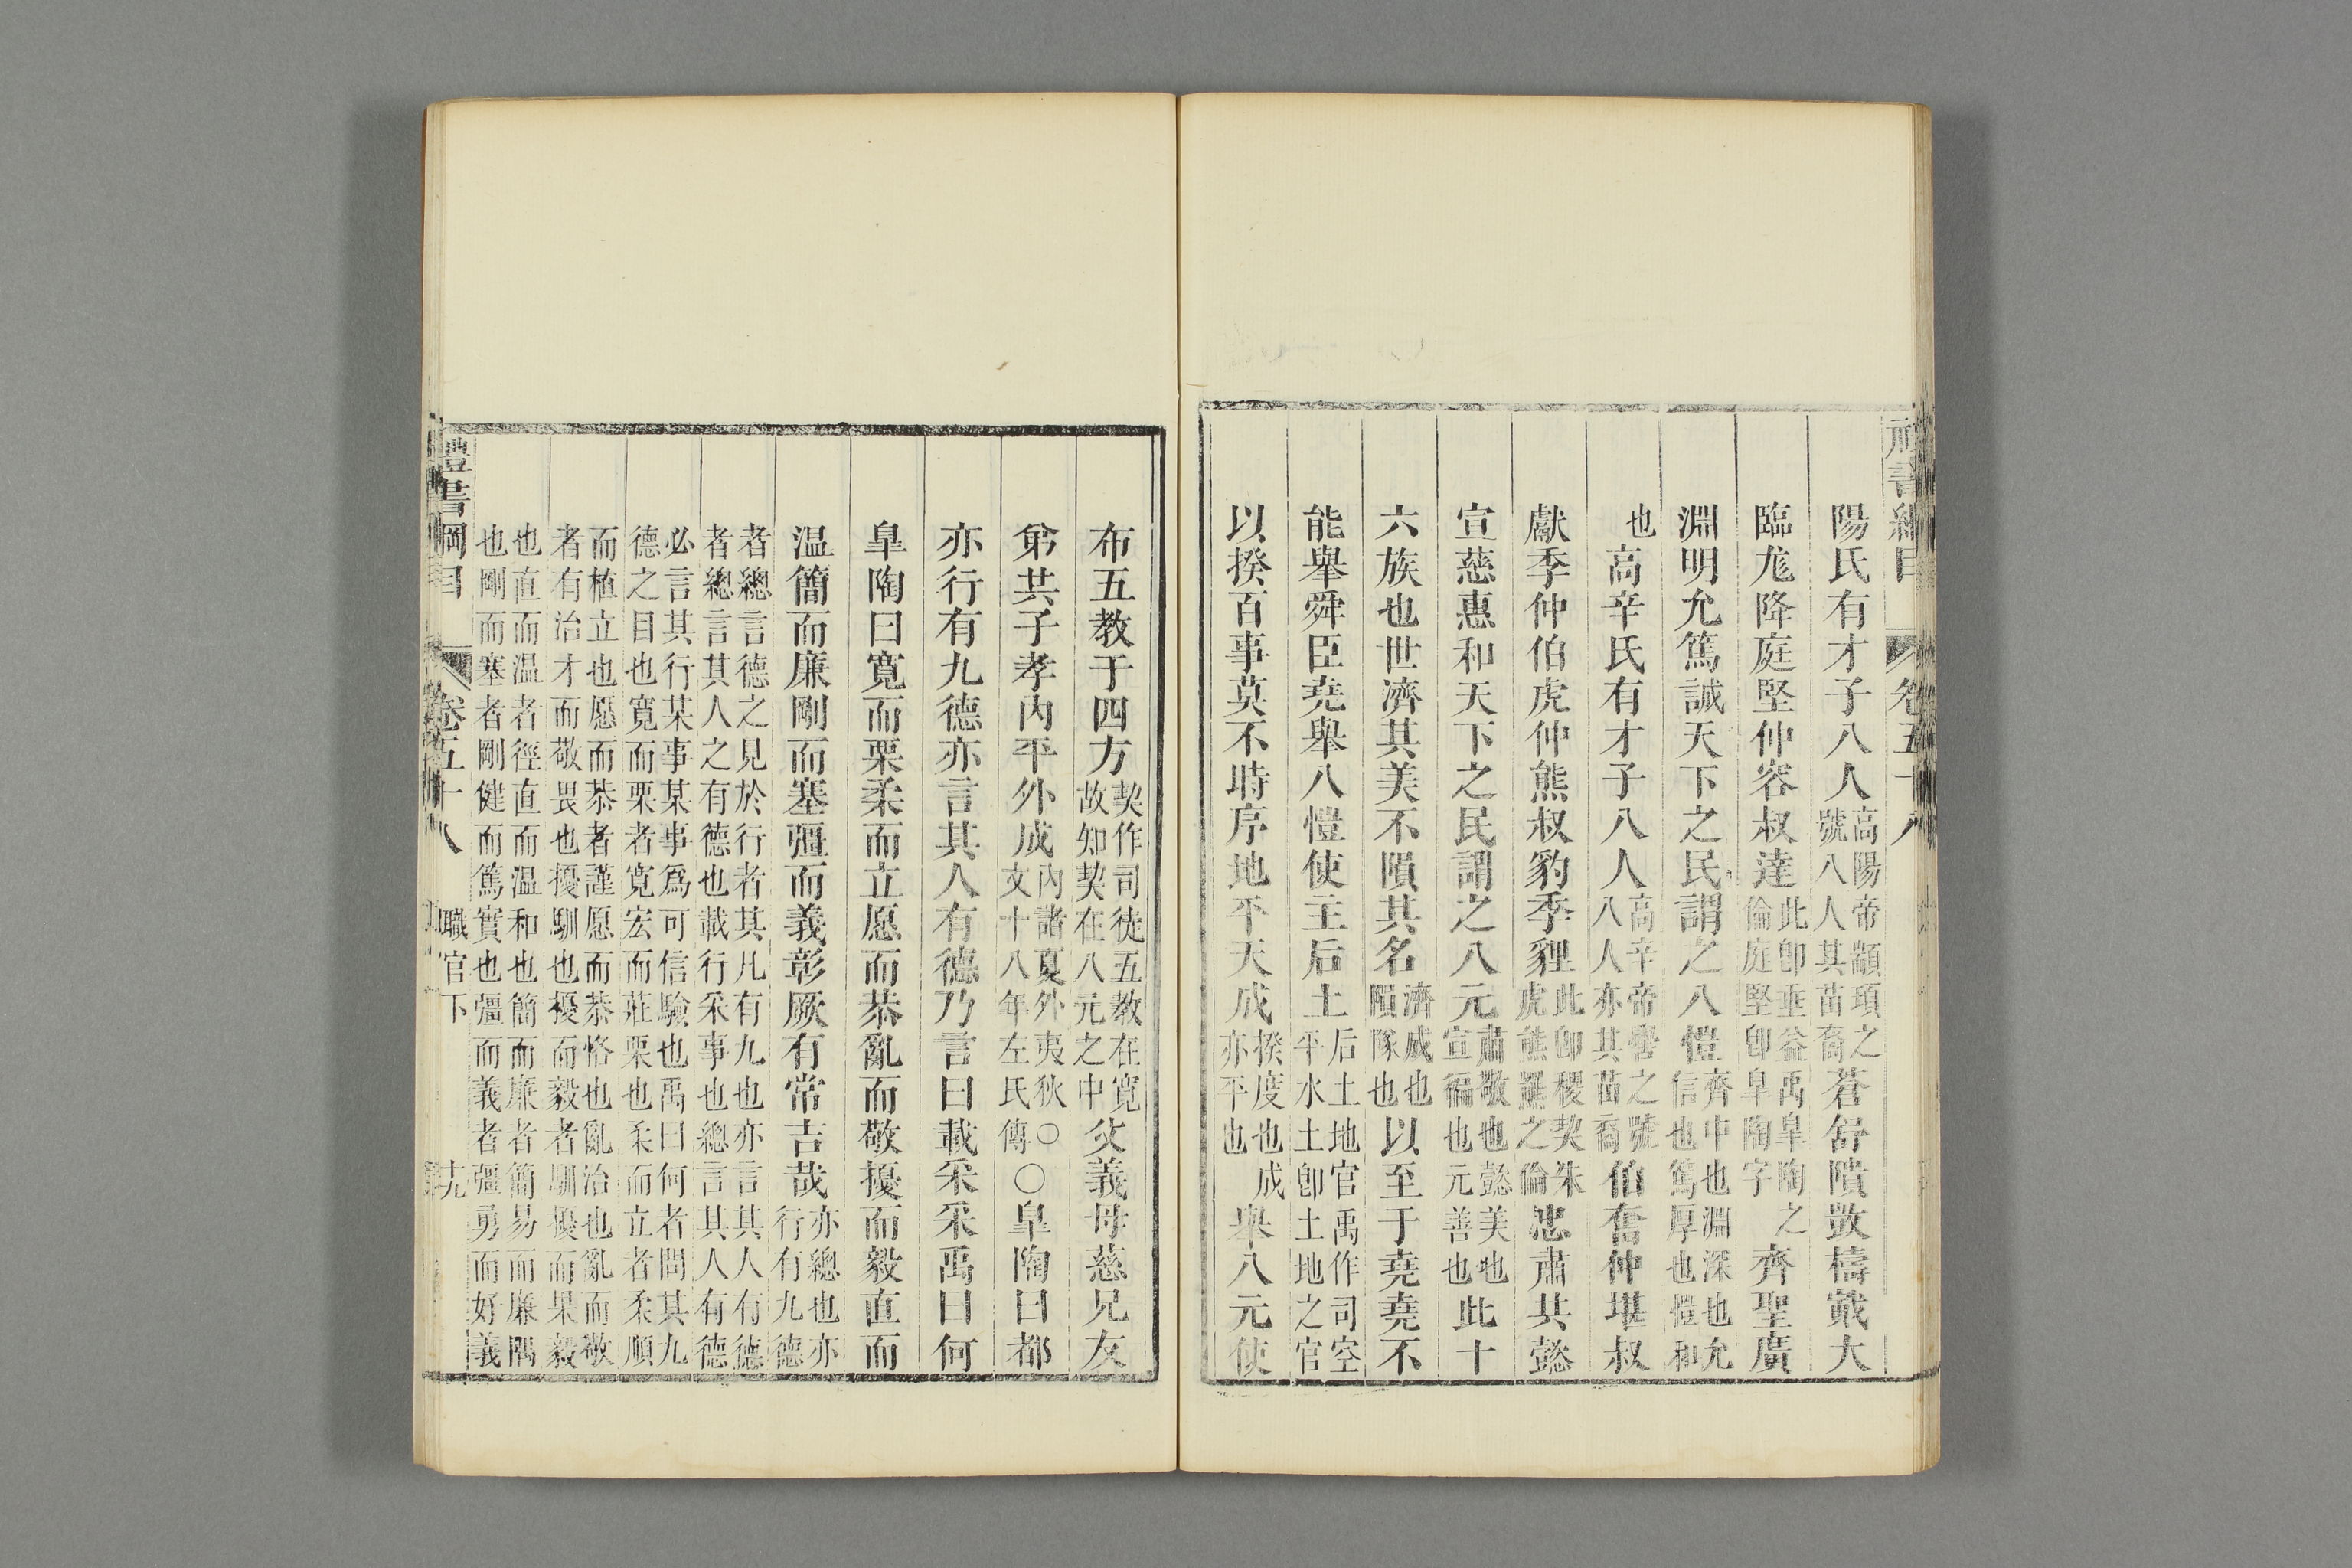 陽氏有才子八人高陽帝顓頊之號八人其苗裔蒼舒隤敳檮戭大
臨尨降庭堅仲容叔達此卽垂益禹皐陶之倫庭堅卽皐陶字齊聖廣
淵明允篤誠天下之民謂之八愷齊中也淵深也允信也篤厚也愷和
也高辛氏有才子八人高辛帝嚳之號八人亦其苗裔伯奮仲堪叔
獻季仲伯虎仲熊叔豹季貍此卽稷契朱虎熊羆之倫忠肅共懿
宣慈惠和天下之民謂之八元肅敬也懿美也宣徧也元善也此十
六族也世濟其美不隕其名濟成也隕隊也以至于堯堯不
能舉舜臣堯舉八愷使主后土后土地官禹作司空平水土卽土地之官
以揆百事莫不時序地平天成揆度也成亦平也舉八元使
布五教于四方契作司徒五教在寬故知契在八元之中父義母慈兄友
弟共子孝內平外成內諸夏外夷狄○文十八年左氏傳○皐陶曰都
亦行有九德亦言其人有德乃言曰載采采禹曰何
皐陶曰寬而栗柔而立愿而恭亂而敬擾而毅直而
温簡而廉剛而塞彊而義彰厥有常吉哉亦總也亦行有九德
者總言德之見於行者其凡有九也亦言其人有德者總言其人之有德也載行采事也總言其人有德
必言其行某事某事爲可信驗也禹曰何者問其九德之目也寬而栗者寬宏而莊栗也柔而立者柔順
而植立也愿而恭者謹愿而恭恪也亂治也亂而敬者有治才而敬畏也擾馴也擾而毅者馴擾而果毅
也直而温者徑直而温和也簡而廉者簡易而廉隅也剛而塞者剛健而篤實也彊而義者彊勇而好義
禮書綱目 卷五十八 職官下